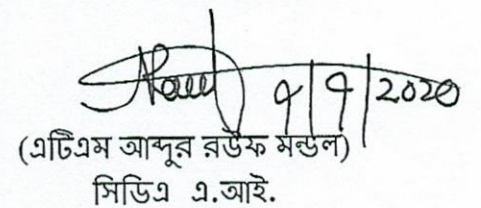 ৭/৭/2020
(এটিএম আব্দুর রউফ মন্ডল)
সিডিএ এ.আই.